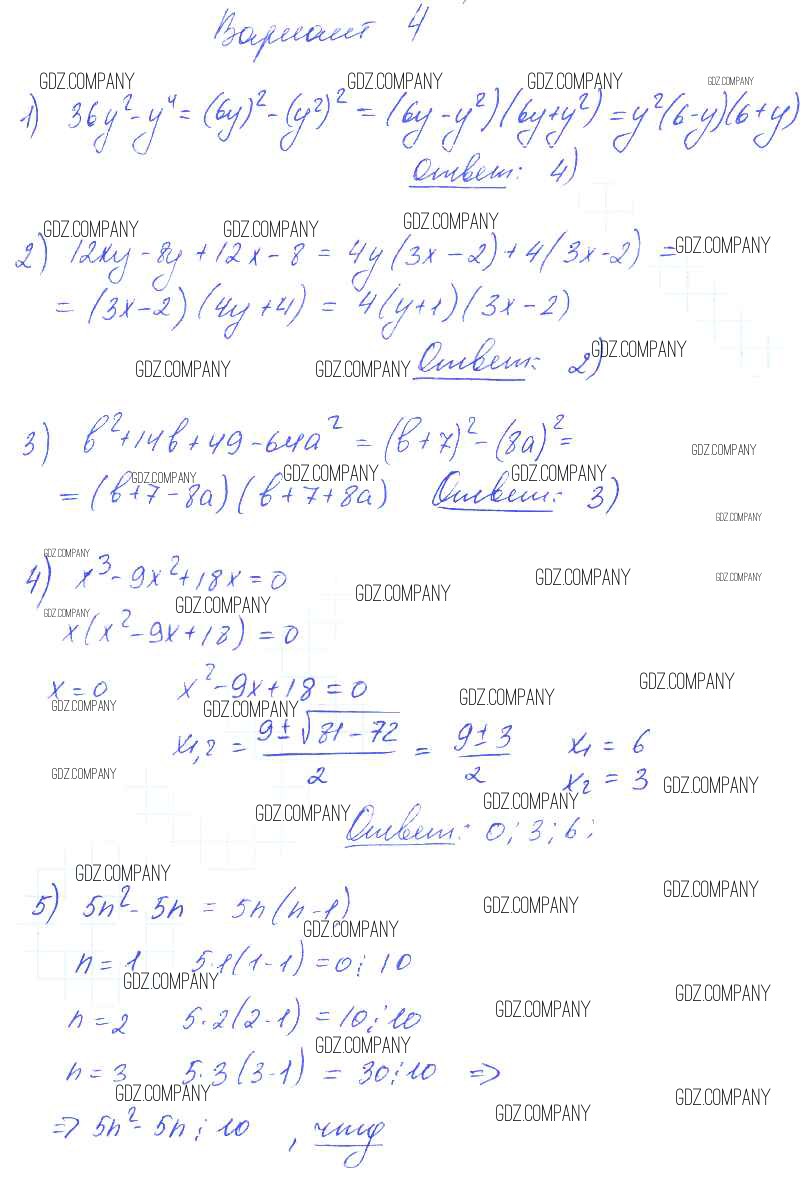 Вариант 4
GDZ.COMPANY GDZ.COMPANY GDZ.COMPANY GDZ.COMPANY
1) 36y² - y⁴ = (6y)² - (y²)² = (6y - y²)(6y + y²) = y²(6 - y)(6 + y)
Ответ: 4)
GDZ.COMPANY GDZ.COMPANY GDZ.COMPANY GDZ.COMPANY
2) 12xy - 8y + 12x - 8 = 4y(3x - 2) + 4(3x - 2) =
= (3x - 2)(4y + 4) = 4(y + 1)(3x - 2)
GDZ.COMPANY GDZ.COMPANY Ответ: 2) GDZ.COMPANY
3) b² + 14b + 49 - 64a² = (b + 7)² - (8a)² =
GDZ.COMPANY
GDZ.COMPANY GDZ.COMPANY GDZ.COMPANY
= (b + 7 - 8a)(b + 7 + 8a) Ответ: 3)
GDZ.COMPANY
GDZ.COMPANY
4) x³ - 9x² + 18x = 0
GDZ.COMPANY GDZ.COMPANY GDZ.COMPANY GDZ.COMPANY
GDZ.COMPANY
x(x² - 9x + 18) = 0
x = 0 x² - 9x + 18 = 0
GDZ.COMPANY GDZ.COMPANY GDZ.COMPANY GDZ.COMPANY
x₁,₂ = (9 ± √(81 - 72))/2 = (9 ± 3)/2 x₁ = 6
x₂ = 3
GDZ.COMPANY GDZ.COMPANY GDZ.COMPANY GDZ.COMPANY
Ответ: 0; 3; 6;
GDZ.COMPANY GDZ.COMPANY
5) 5n² - 5n = 5n(n - 1)
GDZ.COMPANY GDZ.COMPANY
n = 1 5·1(1 - 1) = 0 ⋮ 10
GDZ.COMPANY GDZ.COMPANY GDZ.COMPANY
n = 2 5·2(2 - 1) = 10 ⋮ 10
GDZ.COMPANY
n = 3 5·3(3 - 1) = 30 ⋮ 10 =>
GDZ.COMPANY GDZ.COMPANY GDZ.COMPANY
=> 5n² - 5n ⋮ 10 , чтд